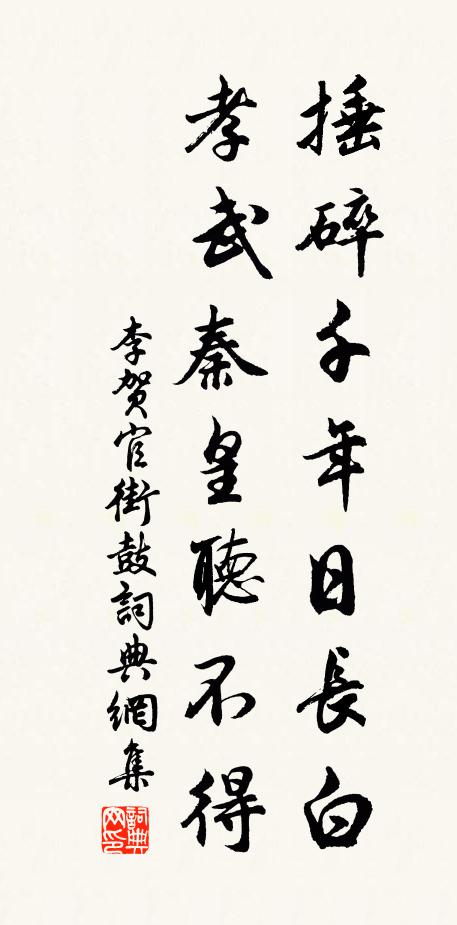 捶碎千年日長白
孝武秦皇聽不得
李賀官街鼓詞典網集
詞典网印